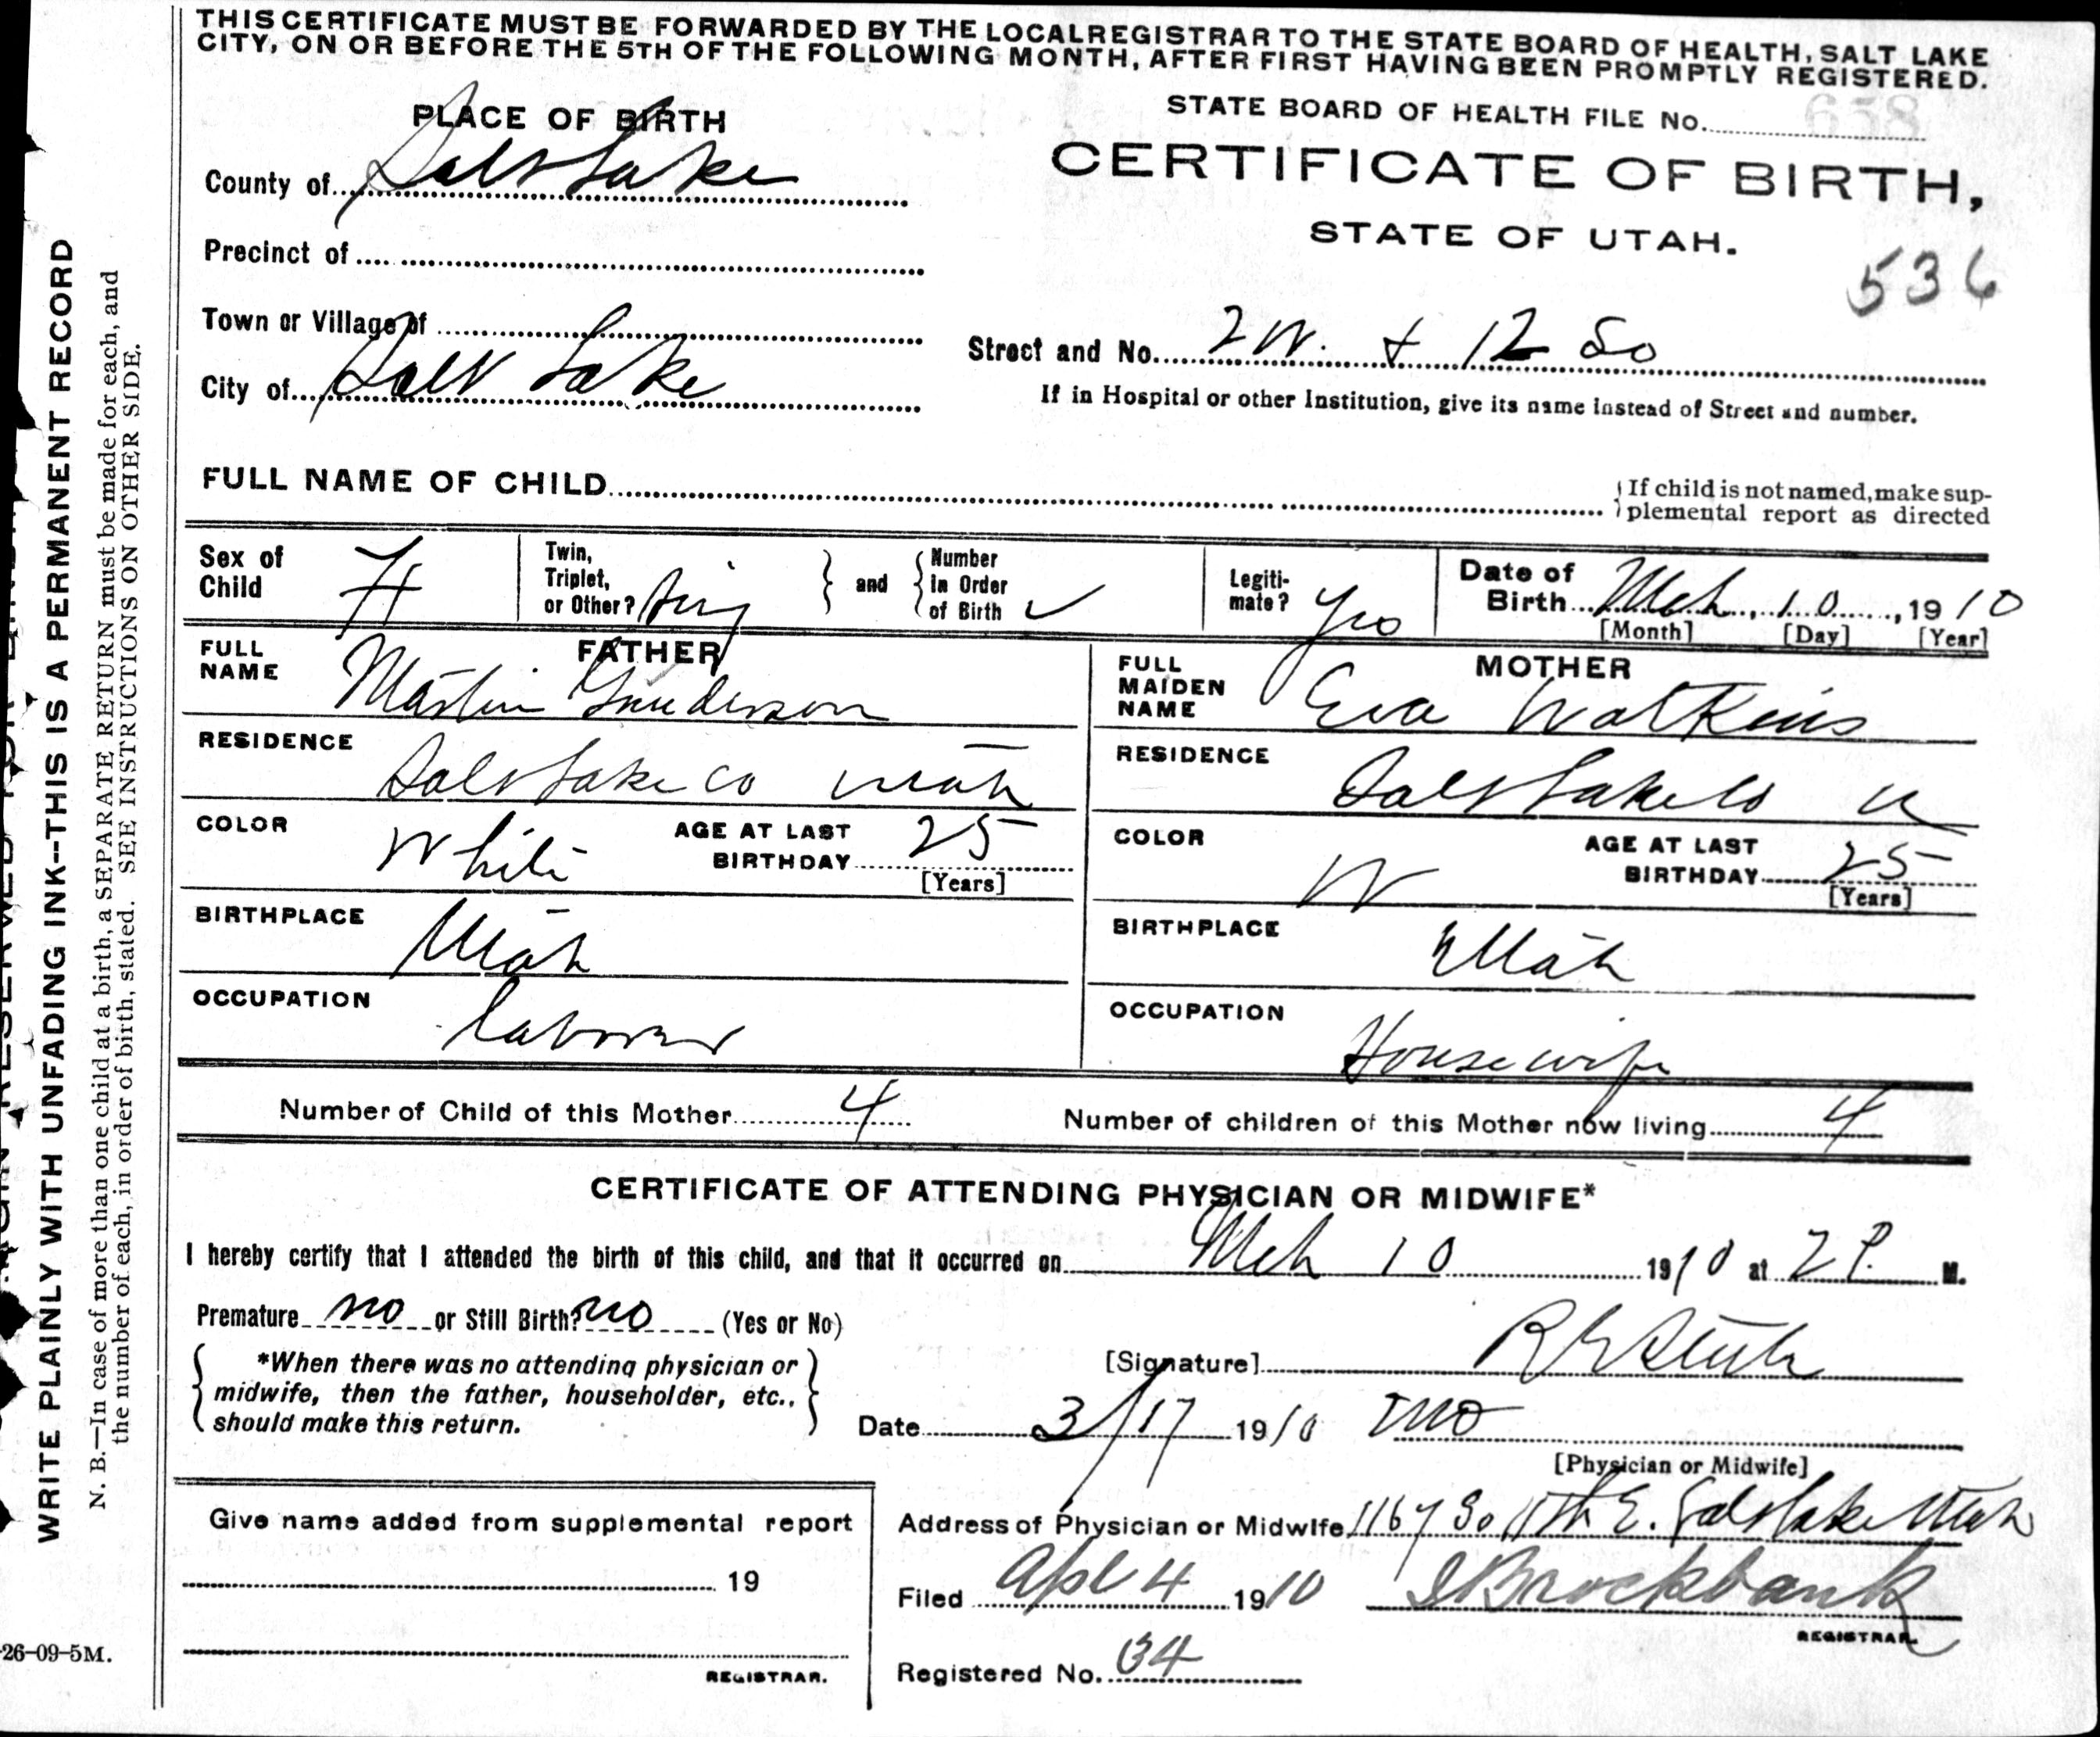 THIS CERTIFICATE MUST BE FORWARDED BY THE LOCAL REGISTRAR TO THE STATE BOARD OF HEALTH, SALT LAKE
CITY, ON OR BEFORE THE 5TH OF THE FOLLOWING MONTH, AFTER FIRST HAVING BEEN PROMPTLY REGISTERED.
PLACE OF BIRTH
STATE BOARD OF HEALTH FILE No. 658
County of Salt Lake
CERTIFICATE OF BIRTH,
STATE OF UTAH.
Precinct of
536
Town or Village of
Street and No. 2 W. + 12 So
City of Salt Lake
If in Hospital or other Institution, give its name instead of Street and number.
FULL NAME OF CHILD
{If child is not named, make sup-
plemental report as directed
Sex of
Child F
Twin,
Triplet,
or Other? Sing
and
Number
in Order
of Birth ✓
Legiti-
mate? Yes
Date of
Birth Mch, 10, 1910
[Month] [Day] [Year]
FATHER
FULL
NAME Martin Gunderson
RESIDENCE Salt Lake Co Utah
COLOR White
AGE AT LAST
BIRTHDAY 25
[Years]
BIRTHPLACE Utah
OCCUPATION laborer
MOTHER
FULL
MAIDEN
NAME Eva Watkins
RESIDENCE Salt Lake Co U
COLOR W
AGE AT LAST
BIRTHDAY 25
[Years]
BIRTHPLACE Utah
OCCUPATION Housewife
Number of Child of this Mother 4
Number of children of this Mother now living 4
CERTIFICATE OF ATTENDING PHYSICIAN OR MIDWIFE*
I hereby certify that I attended the birth of this child, and that it occurred on Mch 10 1910 at 2 P. M.
Premature no or Still Birth? no (Yes or No)
*When there was no attending physician or
midwife, then the father, householder, etc.,
should make this return.
[Signature]
Date 3/17 1910
[Physician or Midwife]
Address of Physician or Midwife 1167 So 11th E. Salt Lake Utah
Filed Apl 4 1910 Brockbank
REGISTRAR.
Registered No. 34
Give name added from supplemental report
19
REGISTRAR.
WRITE PLAINLY WITH UNFADING INK--THIS IS A PERMANENT RECORD
N. B.—In case of more than one child at a birth, a SEPARATE RETURN must be made for each, and
the number of each, in order of birth, stated. SEE INSTRUCTIONS ON OTHER SIDE.
26-09-5M.